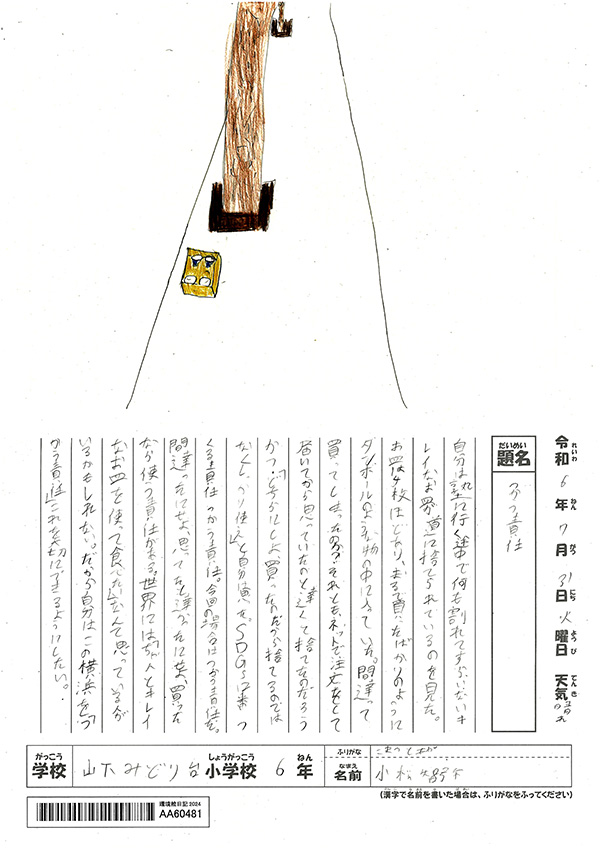 令和6年7月31日火曜日 天気
れいわ ねん がつ にち よう び てんき
だいめい
題名 つかう責任
自分は塾に行く途中で何も割れてすらいないキ
レイなお皿が道に捨てられているのを見た。
お皿は4枚ほどあり、まるで買ったばかりのように
ダンボールのような物の中に入っていた。間違って
買ってしまったのか?それともネットで注文をして
届いてから思っていたのと違くて捨てたのだろう
か?どちらにしよ買ったのだから捨てるのでは
なくしっかり使えと自分は思った。SDGs12番つ
くる責任つかう責任。今回の場合はつかう責任だ。
間違ったにせよ思ってたと違ったにせよ、買った
なら使う責任がある。世界には「が人とキレイ
なお皿を使って食べたい」なんて思っている
いるかもしれない。だから自分はこの横浜を「つ
かう責任」これを大切にできるようにしたい。
がっこう しょうがっこう ねん
学校 山下みどり台小学校 6年
ふりがな
なまえ
名前 小松
(漢字で名前を書いた場合は、ふりがなをふってください)
環境絵日記2024
AA60481